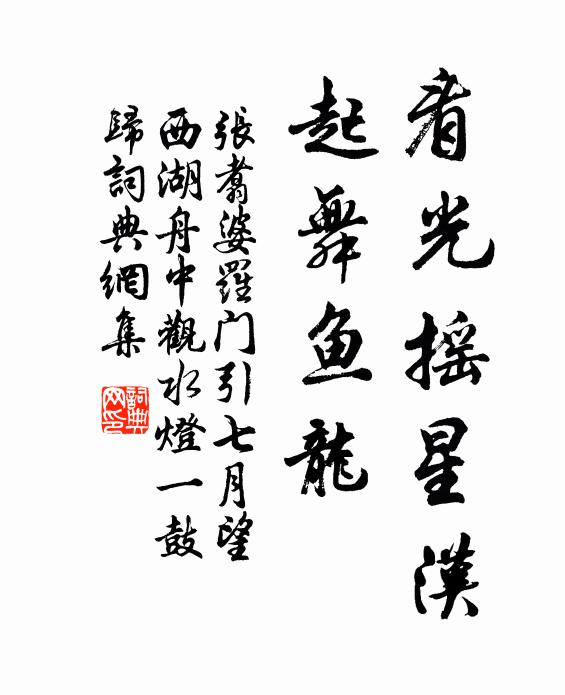 看光摇星漢
起舞鱼龍
張翥婆羅门引七月望
西湖舟中觀水燈一鼓
歸詞典網集
詞典
网印